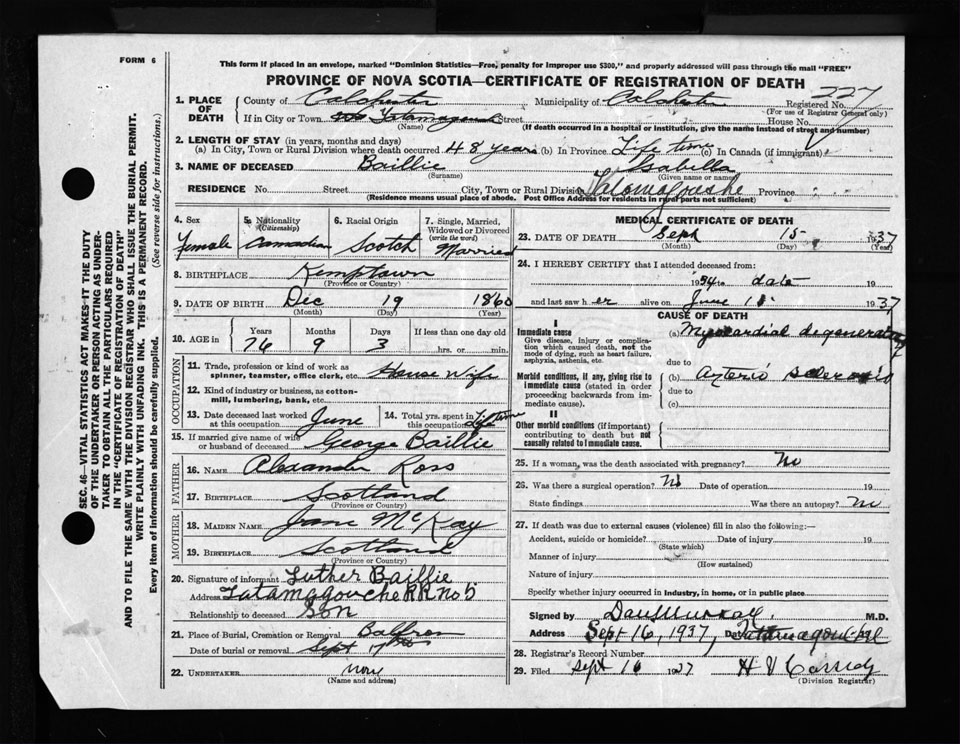 FORM 6
This form if placed in an envelope, marked "Dominion Statistics—Free, penalty for improper use $300," and properly addressed will pass through the mail "FREE"
PROVINCE OF NOVA SCOTIA—CERTIFICATE OF REGISTRATION OF DEATH
SEC. 46—VITAL STATISTICS ACT MAKES IT THE DUTY
OF THE UNDERTAKER OR PERSON ACTING AS UNDER-
TAKER TO OBTAIN ALL THE PARTICULARS REQUIRED
IN THE "CERTIFICATE OF REGISTRATION OF DEATH"
AND TO FILE THE SAME WITH THE DIVISION REGISTRAR WHO SHALL ISSUE THE BURIAL PERMIT.
WRITE PLAINLY WITH UNFADING INK. THIS IS A PERMANENT RECORD.
Every item of Information should be carefully supplied. (See reverse side for instructions.)
1. PLACE OF DEATH
County of Colchester Municipality of Colchester Registered No. 227
(For use of Registrar General only)
If in City or Town Tatamagouche Street House No.
(Name) (If death occurred in a hospital or institution, give the name instead of street and number)
2. LENGTH OF STAY (in years, months and days)
(a) In City, Town or Rural Division where death occurred 48 years (b) In Province Life time (c) In Canada (if immigrant)
3. NAME OF DECEASED Baillie Isabella
(Surname) (Given name or names)
RESIDENCE No. Street City, Town or Rural Division Tatamagouche Province
(Residence means usual place of abode. Post Office Address for residents in rural parts not sufficient)
4. Sex 5. Nationality (Citizenship) 6. Racial Origin 7. Single, Married, Widowed or Divorced (write the word)
Female Canadian Scotch Married
8. BIRTHPLACE Kemptown
(Province or Country)
9. DATE OF BIRTH Dec 19 1860
(Month) (Day) (Year)
10. AGE in Years Months Days If less than one day old
76 9 3 hrs. or min.
OCCUPATION
11. Trade, profession or kind of work as spinner, teamster, office clerk, etc. House Wife
12. Kind of industry or business, as cotton-mill, lumbering, bank, etc.
13. Date deceased last worked at this occupation June 14. Total yrs. spent in this occupation Life time
15. If married give name of wife or husband of deceased George Baillie
FATHER
16. NAME Alexander Ross
17. BIRTHPLACE Scotland
(Province or Country)
MOTHER
18. MAIDEN NAME Jane McKay
19. BIRTHPLACE Scotland
(Province or Country)
20. Signature of informant Luther Baillie
Address Tatamagouche RR no 5
Relationship to deceased Son
21. Place of Burial, Cremation or Removal Balfron
Date of burial or removal Sept 17
22. UNDERTAKER
(Name and address)
MEDICAL CERTIFICATE OF DEATH
23. DATE OF DEATH Sept 15 1937
(Month) (Day) (Year)
24. I HEREBY CERTIFY that I attended deceased from:
1934 to date 19
and last saw her alive on June 1937
CAUSE OF DEATH
I
Immediate cause (a) Myocardial degeneration
Give disease, injury or complication which caused death, not the mode of dying, such as heart failure, asphyxia, asthenia, etc.
due to
Morbid conditions, if any, giving rise to immediate cause (stated in order proceeding backwards from immediate cause).
(b) Arterio sclerosis
due to
(c)
II
Other morbid conditions (if important) contributing to death but not causally related to immediate cause.
25. If a woman, was the death associated with pregnancy? No
26. Was there a surgical operation? No Date of operation 19
State findings Was there an autopsy? No
27. If death was due to external causes (violence) fill in also the following:—
Accident, suicide or homicide? Date of injury 19
(State which)
Manner of injury
(How sustained)
Nature of injury
Specify whether injury occurred in Industry, in home, or in public place
Signed by Dan Murray M.D.
Address Sept 16, 1937, Date Tatamagouche
28. Registrar's Record Number
29. Filed Sept 16 1937 H V Cassidy
(Division Registrar)